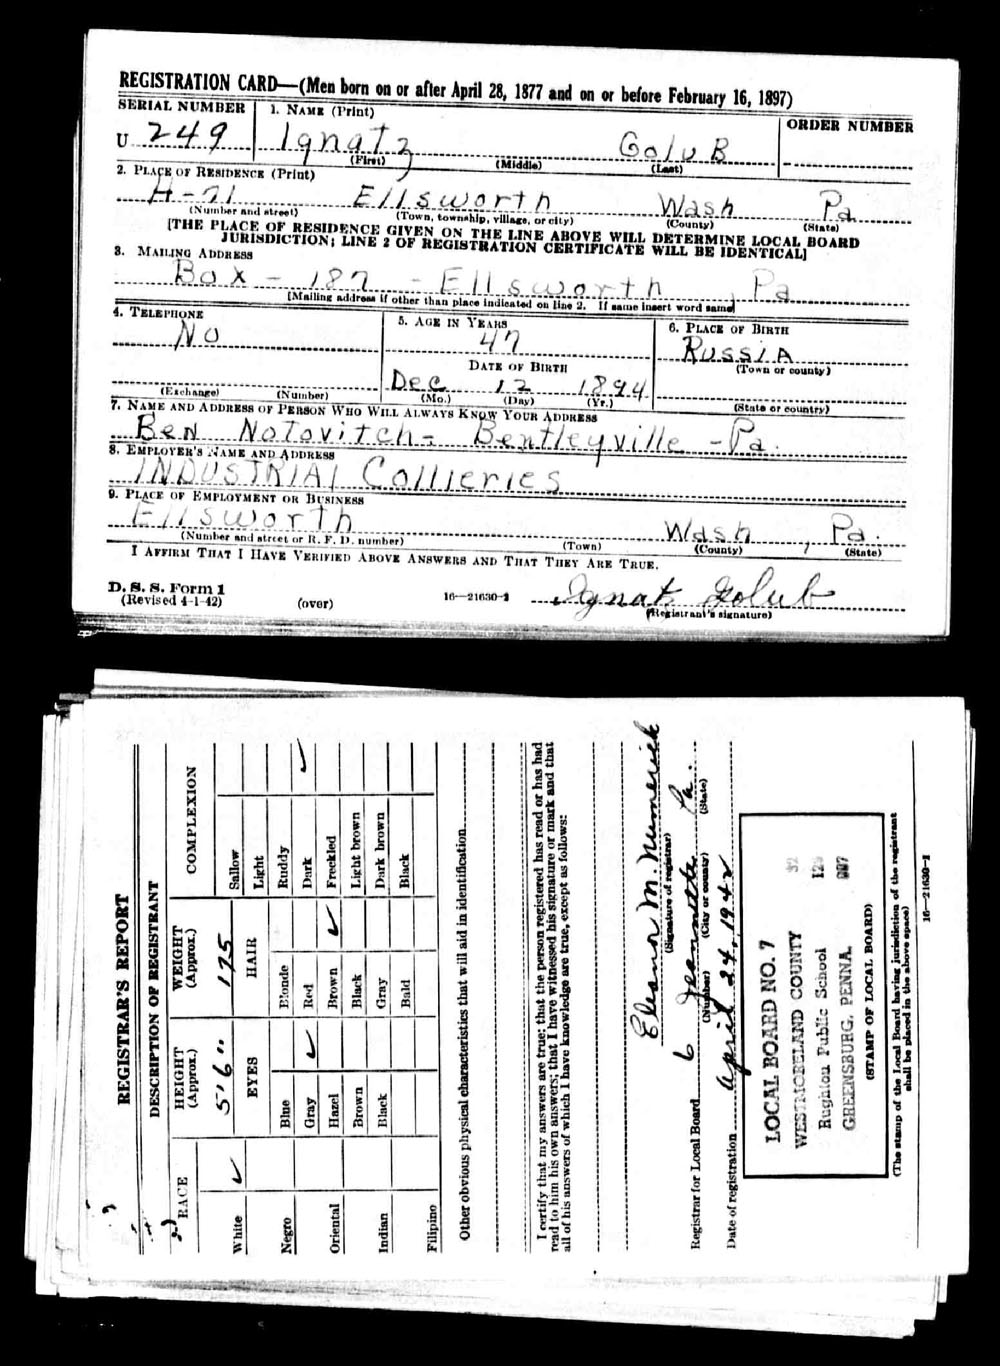 REGISTRATION CARD—(Men born on or after April 28, 1877 and on or before February 16, 1897)
SERIAL NUMBER 1. NAME (Print) ORDER NUMBER
U 249 Ignatz Golub
(First) (Middle) (Last)
2. PLACE OF RESIDENCE (Print)
H-71 Ellsworth Wash Pa
(Number and street) (Town, township, village, or city) (County) (State)
[THE PLACE OF RESIDENCE GIVEN ON THE LINE ABOVE WILL DETERMINE LOCAL BOARD
JURISDICTION; LINE 2 OF REGISTRATION CERTIFICATE WILL BE IDENTICAL]
3. MAILING ADDRESS
Box - 187 - Ellsworth, Pa
[Mailing address if other than place indicated on line 2. If same insert word same]
4. TELEPHONE 5. AGE IN YEARS 6. PLACE OF BIRTH
NO 47 RUSSIA
(Town or county)
DATE OF BIRTH
Dec 12 1894
(Exchange) (Number) (Mo.) (Day) (Yr.) (State or country)
7. NAME AND ADDRESS OF PERSON WHO WILL ALWAYS KNOW YOUR ADDRESS
Ben Notovitch - Bentleyville - Pa.
8. EMPLOYER'S NAME AND ADDRESS
INDUSTRIAL Collieries
9. PLACE OF EMPLOYMENT OR BUSINESS
Ellsworth Wash, Pa.
(Number and street or R. F. D. number) (Town) (County) (State)
I AFFIRM THAT I HAVE VERIFIED ABOVE ANSWERS AND THAT THEY ARE TRUE.
D. S. S. Form 1
(Revised 4-1-42) (over) 16—21630-1 Ignatz Golub
(Registrant's signature)
REGISTRAR'S REPORT
DESCRIPTION OF REGISTRANT
RACE HEIGHT (Approx.) WEIGHT (Approx.) COMPLEXION
White ✓ 5'6" 175 Sallow
EYES HAIR Light
Negro Blue Blonde Ruddy
Gray ✓ Red Dark ✓
Oriental Hazel Brown ✓ Freckled
Brown Black Light brown
Indian Black Gray Dark brown
Bald Black
Filipino
Other obvious physical characteristics that will aid in identification
I certify that my answers are true; that the person registered has read or has had
read to him his own answers; that I have witnessed his signature or mark and that
all of his answers of which I have knowledge are true, except as follows:
Eleanor M.
(Signature of registrar)
Registrar for Local Board 6 Jeannette Pa.
(Number) (City or county) (State)
Date of registration April 24, 1942
LOCAL BOARD NO. 7 32
WESTMORELAND COUNTY 129
Rughton Public School 007
GREENSBURG, PENNA.
(STAMP OF LOCAL BOARD)
(The stamp of the Local Board having jurisdiction of the registrant
shall be placed in the above space)
16—21630-1